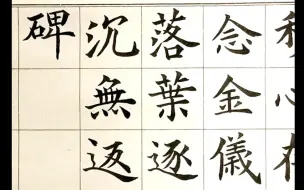 心在
念金儀
落葉逐
沉無返
碑